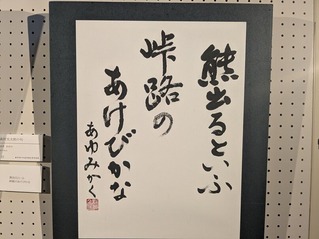 熊出るといふ
峠路の
あけびかな
あゆみかく